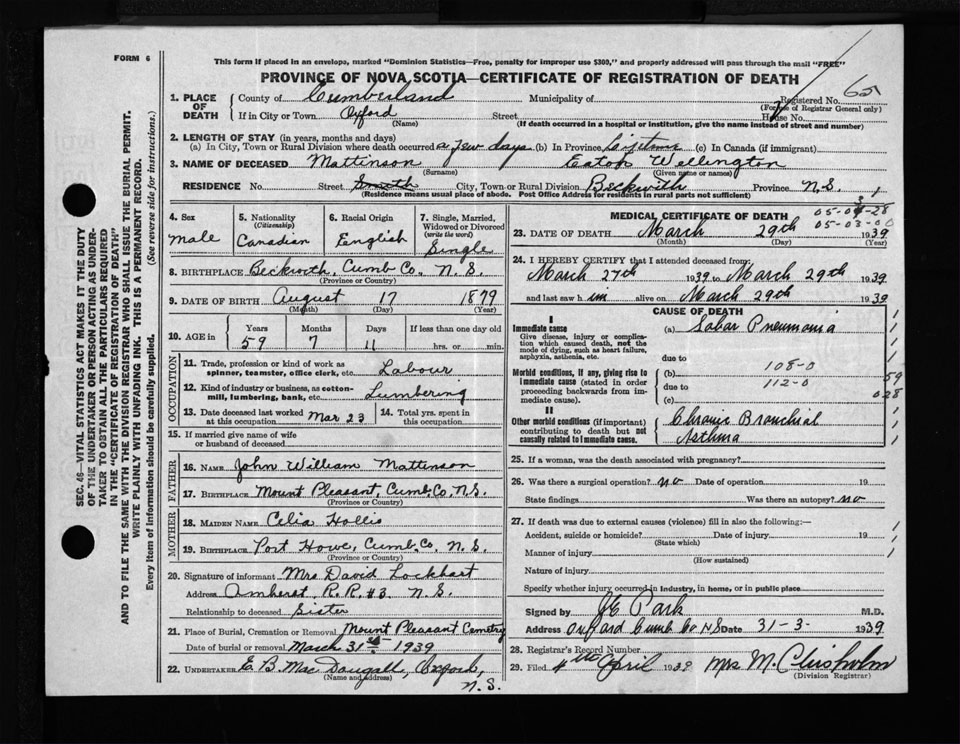 FORM 6
This form if placed in an envelope, marked "Dominion Statistics—Free, penalty for improper use $300," and properly addressed will pass through the mail "FREE"
PROVINCE OF NOVA SCOTIA—CERTIFICATE OF REGISTRATION OF DEATH
SEC. 46—VITAL STATISTICS ACT MAKES IT THE DUTY
OF THE UNDERTAKER OR PERSON ACTING AS UNDER-
TAKER TO OBTAIN ALL THE PARTICULARS REQUIRED
IN THE "CERTIFICATE OF REGISTRATION OF DEATH"
AND TO FILE THE SAME WITH THE DIVISION REGISTRAR WHO SHALL ISSUE THE BURIAL PERMIT.
WRITE PLAINLY WITH UNFADING INK. THIS IS A PERMANENT RECORD.
Every item of information should be carefully supplied. (See reverse side for instructions.)
1. PLACE OF DEATH
County of Cumberland Municipality of Registered No.
(For use of Registrar General only)
If in City or Town Oxford Street House No.
(Name) (If death occurred in a hospital or institution, give the name instead of street and number)
2. LENGTH OF STAY (in years, months and days)
(a) In City, Town or Rural Division where death occurred a few days (b) In Province Lifetime (c) In Canada (if immigrant)
3. NAME OF DECEASED Mattinson Eaton Wellington
(Surname) (Given name or names)
RESIDENCE No. Street City, Town or Rural Division Beckwith Province N.S.
(Residence means usual place of abode. Post Office Address for residents in rural parts not sufficient)
4. Sex 5. Nationality 6. Racial Origin 7. Single, Married,
(Citizenship) Widowed or Divorced
(write the word)
Male Canadian English Single
8. BIRTHPLACE Beckwith, Cumb Co. N.S.
(Province or Country)
9. DATE OF BIRTH August 17 1879
(Month) (Day) (Year)
10. AGE in Years Months Days If less than one day old
59 7 11 hrs. or min.
OCCUPATION
11. Trade, profession or kind of work as
spinner, teamster, office clerk, etc. Labour
12. Kind of industry or business, as cotton-
mill, lumbering, bank, etc. Lumbering
13. Date deceased last worked at this occupation Mar 23 14. Total yrs. spent in this occupation
15. If married give name of wife
or husband of deceased
FATHER
16. NAME John William Mattinson
17. BIRTHPLACE Mount Pleasant, Cumb. Co, N.S.
(Province or Country)
MOTHER
18. MAIDEN NAME Celia Hollis
19. BIRTHPLACE Port Howe, Cumb. Co. N.S.
(Province or Country)
20. Signature of informant Mrs David Lockhart
Address Amherst, R.R. #3 N.S.
Relationship to deceased Sister
21. Place of Burial, Cremation or Removal Mount Pleasant Cemetery
Date of burial or removal March 31st 1939
22. UNDERTAKER E. B. MacDougall, Oxford,
(Name and address) N.S.
MEDICAL CERTIFICATE OF DEATH
05-03-00
23. DATE OF DEATH March 29th 1939
(Month) (Day) (Year)
24. I HEREBY CERTIFY that I attended deceased from:
March 27th 1939 to March 29th 1939
and last saw him alive on March 29th 1939
CAUSE OF DEATH
I
Immediate cause (a) Lobar Pneumonia
Give disease, injury or complica-
tion which caused death, not the
mode of dying, such as heart failure,
asphyxia, asthenia, etc.
due to
Morbid conditions, if any, giving rise to (b) 108-0
immediate cause (stated in order due to 112-0 59
proceeding backwards from im- (c) 028
mediate cause).
II
Other morbid conditions (if important) Chronic Bronchial
contributing to death but not Asthma
causally related to immediate cause.
25. If a woman, was the death associated with pregnancy?
26. Was there a surgical operation? no Date of operation 19
State findings Was there an autopsy? no
27. If death was due to external causes (violence) fill in also the following:—
Accident, suicide or homicide? Date of injury 19
(State which)
Manner of injury
(How sustained)
Nature of injury
Specify whether injury occurred in industry, in home, or in public place
Signed by JE Park M.D.
Address Oxford Cumb Co NS Date 31-3- 1939
28. Registrar's Record Number
29. Filed 4th April 1939 Mrs M. Chisholm
(Division Registrar)